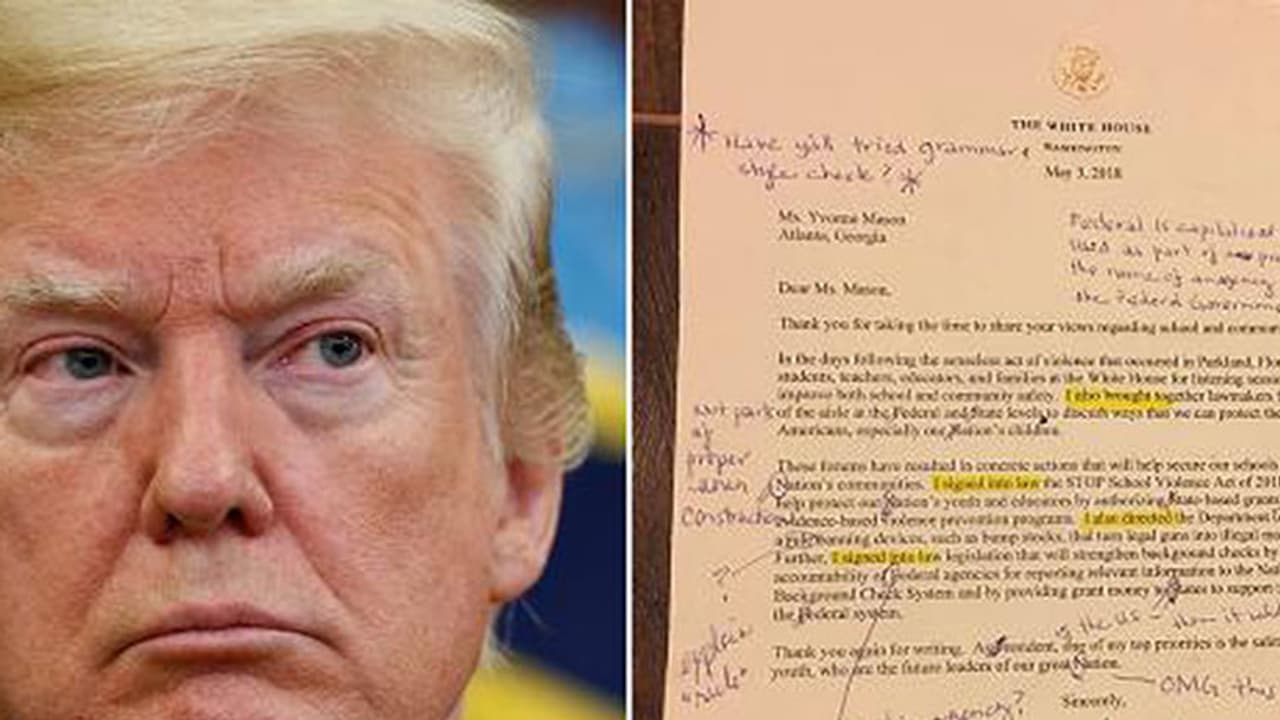 THE WHITE HOUSE
WASHINGTON
May 3, 2018
* Have you tried grammar &
style check? *
Ms. Yvonne Mason
Atlanta, Georgia
Federal is capitalized
used as part of
the name of an agency
the Federal Governm
Dear Ms. Mason,
Thank you for taking the time to share your views regarding school and commun
In the days following the senseless act of violence that occurred in Parkland, Flo
students, teachers, educators, and families at the White House for listening sessi
improve both school and community safety. I also brought together lawmakers
of the aisle at the Federal and State levels to discuss ways that we can protect the
Americans, especially our Nation's children.
Not part
of
proper
These forums have resulted in concrete actions that will help secure our schools
Nation's communities. I signed into law the STOP School Violence Act of 201
help protect our Nation's youth and educators by authorizing State-based grants
evidence-based violence prevention programs. I also directed the Department
banning devices, such as bump stocks, that turn legal guns into illegal m
Further, I signed into law legislation that will strengthen background checks by
accountability of Federal agencies for reporting relevant information to the Nati
Background Check System and by providing grant money to States to support
the Federal system.
?
explain
"rule"
of the US - then it
Thank you again for writing. As President, one of my top priorities is the safe
youth, who are the future leaders of our great Nation.
OMG this
Sincerely,
agency?